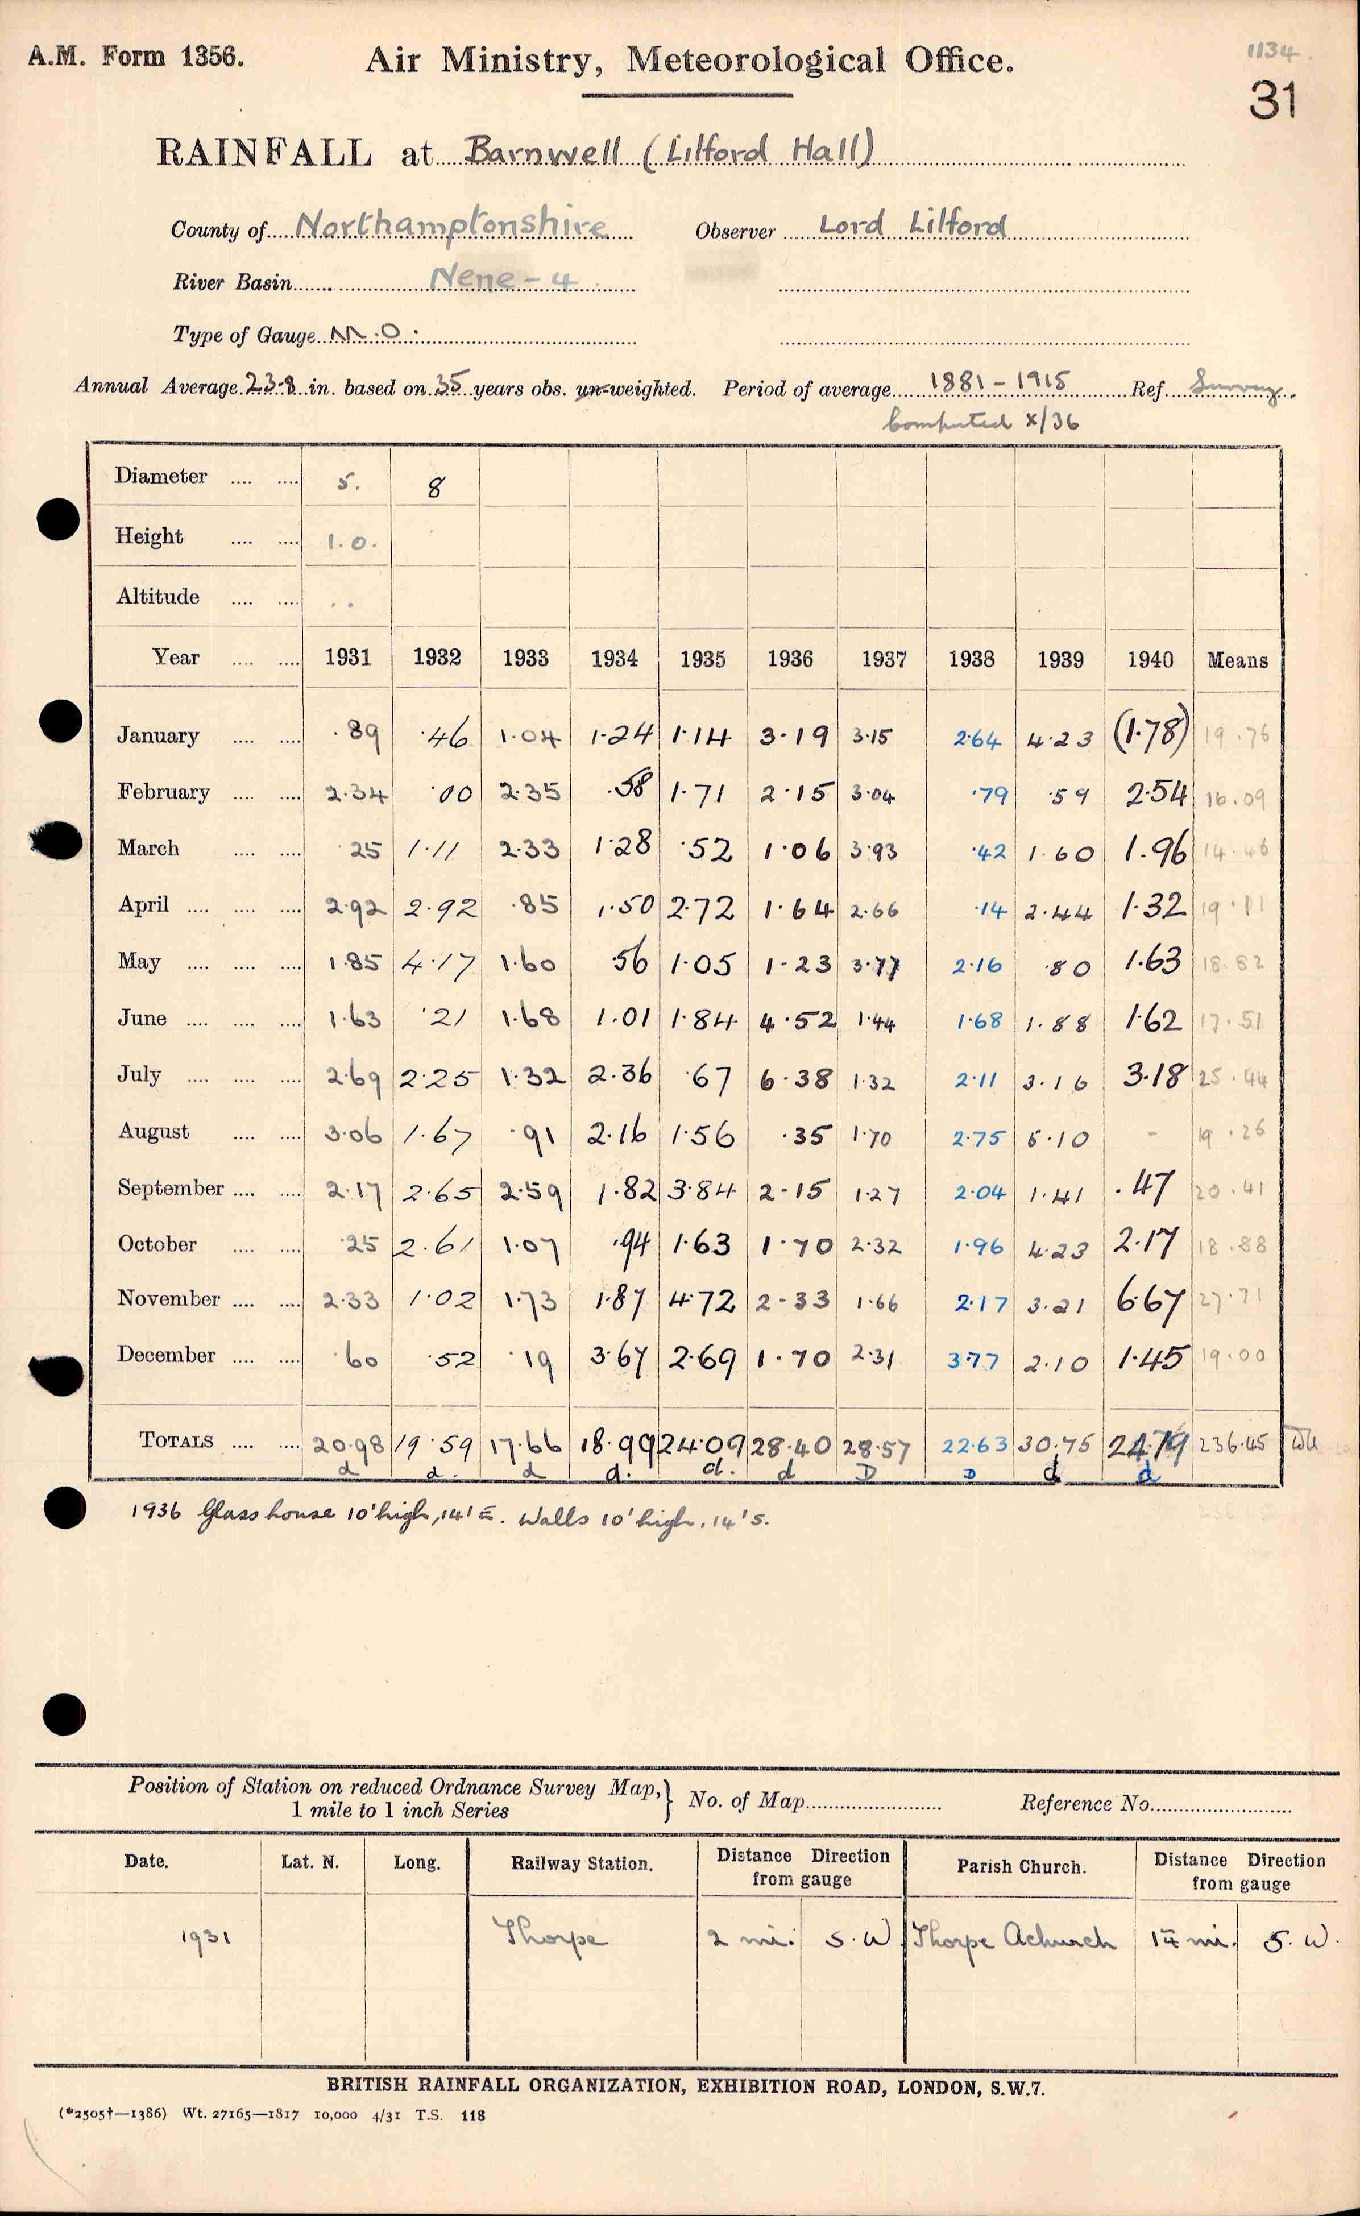 1134
A.M. Form 1356. Air Ministry, Meteorological Office.
31
RAINFALL at Barnwell (Lilford Hall)
County of Northamptonshire Observer Lord Lilford
River Basin Nene - 4
Type of Gauge M.O.
Annual Average 23.8 in. based on 35 years obs. un-weighted. Period of average 1881-1915 Ref. Survey
Computed X/36
Diameter .... .... 5. 8
Height .... .... 1.0.
Altitude .... ....
Year .... .... 1931 1932 1933 1934 1935 1936 1937 1938 1939 1940 Means
January .... .... .89 .46 1.04 1.24 1.14 3.19 3.15 2.64 4.23 (1.78) 19.76
February .... .... 2.34 .00 2.35 .58 1.71 2.15 3.04 .79 .59 2.54 16.09
March .... .... .25 1.11 2.33 1.28 .52 1.06 3.93 .42 1.60 1.96 14.46
April .... .... .... 2.92 2.92 .85 1.50 2.72 1.64 2.66 .14 2.44 1.32 19.11
May .... .... .... 1.85 4.17 1.60 .56 1.05 1.23 3.77 2.16 .80 1.63 18.82
June .... .... .... 1.63 .21 1.68 1.01 1.84 4.52 1.44 1.68 1.88 1.62 17.51
July .... .... .... 2.69 2.25 1.32 2.36 .67 6.38 1.32 2.11 3.16 3.18 25.44
August .... .... 3.06 1.67 .91 2.16 1.56 .35 1.70 2.75 5.10 - 19.26
September .... .... 2.17 2.65 2.59 1.82 3.84 2.15 1.27 2.04 1.41 .47 20.41
October .... .... .25 2.61 1.07 .94 1.63 1.70 2.32 1.96 4.23 2.17 18.88
November .... .... 2.33 1.02 1.73 1.87 4.72 2.33 1.66 2.17 3.21 6.67 27.71
December .... .... .60 .52 .19 3.67 2.69 1.70 2.31 3.77 2.10 1.45 19.00
TOTALS .... .... 20.98 19.59 17.66 18.99 24.09 28.40 28.57 22.63 30.75 24.79 236.45
d d. d d. d. d D D d d
1936 Glass house 10' high, 14' E. Walls 10' high, 14' S.
Position of Station on reduced Ordnance Survey Map, } No. of Map Reference No.
1 mile to 1 inch Series
Date. Lat. N. Long. Railway Station. Distance Direction from gauge Parish Church. Distance Direction from gauge
1931 Thorpe 2 mi. S.W. Thorpe Achurch 1¼ mi. S.W.
BRITISH RAINFALL ORGANIZATION, EXHIBITION ROAD, LONDON, S.W.7.
(*2505†—1386) Wt. 27165—1817 10,000 4/31 T.S. 118